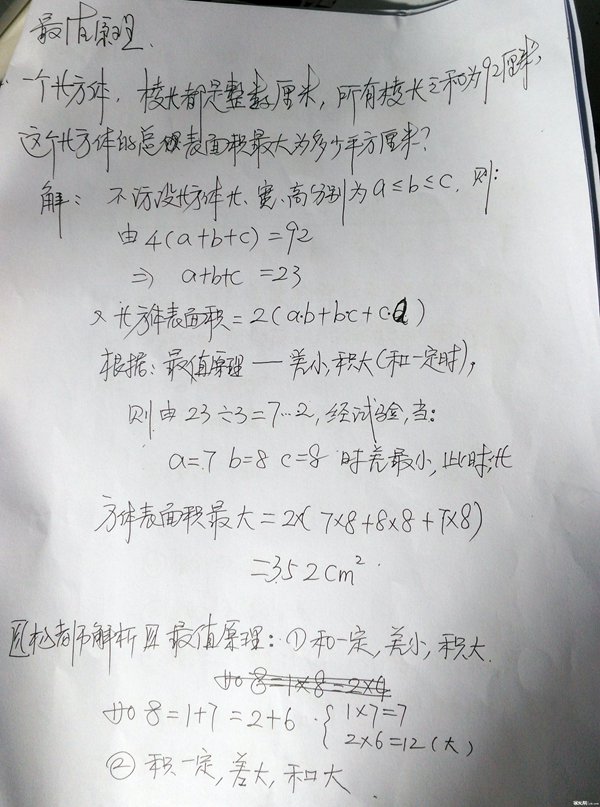 最值原理.
一个长方体,棱长都是整数厘米,所有棱长之和为92厘米,
这个长方体的总表面积最大为多少平方厘米?
解: 不妨设长方体长、宽、高分别为a≤b≤c.则:
由4(a+b+c)=92
⇒ a+b+c =23
又长方体表面积=2(a·b+bc+c·a)
根据:最值原理——差小,积大(和一定时),
则由23÷3=7…2,经试验,当:
a=7 b=8 c=8 时差最小,此时,长
方体表面积最大=2×(7×8+8×8+7×8)
=352cm²
老师解析 最值原理:①和一定,差小,积大.
如 8=1×8=2×4
如8=1+7=2+6. { 1×7=7
2×6=12(大)
② 积一定,差大,和大